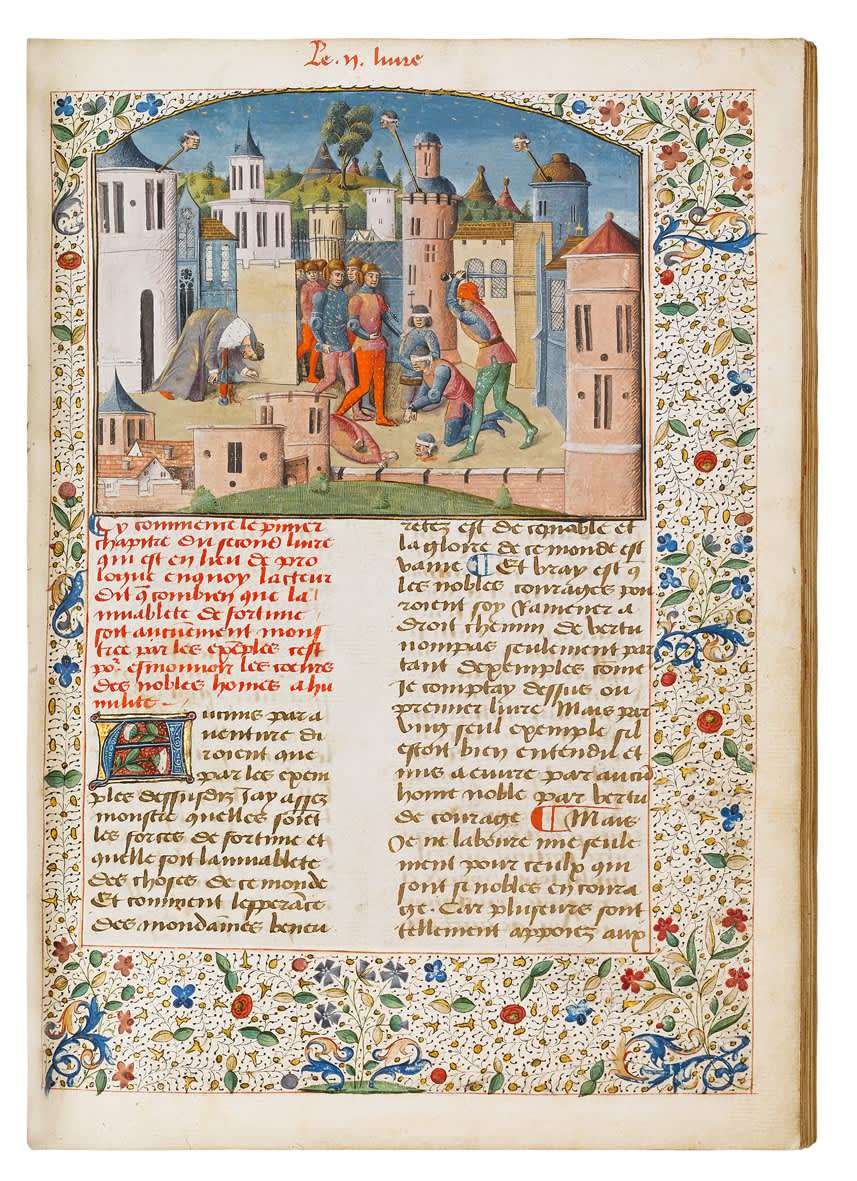 Le .ii. livre
Cy commence le premier
chapitre du second livre
qui est en lieu de pro
logue enquoy lacteur
dit q̄ combien que la
muablete de fortune
soit aucunement mons
tree par les exēples cest
por esmouvoir les coeurs
des nobles hōmes a hu
milite
Aucuns par a
venture di
roient que
par les exem
ples dessusdiz Jay assez
monstre quelles sōt
les forces de fortune et
quelle soit la muablete
des choses de ce monde
Et comment lesperāce
des mondaines beneu
retez est decepuable et
la gloire de ce monde est
vaine ¶ Et vray est q̄
les nobles courages pou
roient soy Ramener a
droit chemin de vertu
nompas seulement par
tant dexemples cōme
Je comptay dessus ou
premier livre Mais par
ung seul exemple sil
estoit bien entendu et
mis a euvre par aucū
home noble par vertu
de courage ¶ Mais
Je ne laboure mie seule
ment pour ceulx qui
sont si nobles en coura
ge. Car pluseurs sont
tellement appoiez aux